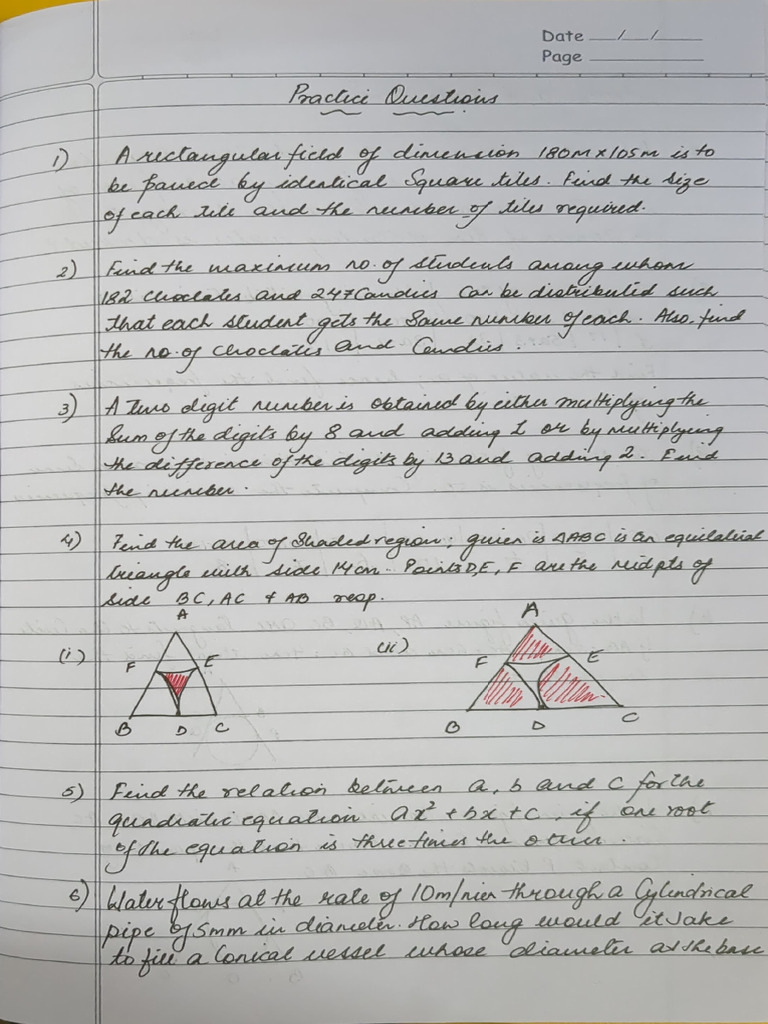 Date __/__/____
Page ________
Practice Questions
1) A rectangular field of dimension 180m x 105m is to
be paved by identical Square tiles. Find the size
of each tile and the number of tiles required.
2) Find the maximum no. of students among whom
182 choclates and 247 Candies Can be distributed such
that each student gets the Same number of each. Also, find
the no. of choclates and Candies.
3) A Two digit number is obtained by either multiplying the
Sum of the digits by 8 and adding 1 or by multiplying
the difference of the digits by 13 and adding 2. Find
the number.
4) Find the area of Shaded region; given is △ABC is an equilateral
triangle with side 14cm. Points D, E, F are the mid pts of
side BC, AC & AB resp.
(i) A F E B D C
(ii) A F E B D C
5) Find the relation between a, b and c for the
quadratic equation ax² + bx + c, if one root
of the equation is three times the other.
6) Water flows at the rate of 10m/min through a Cylindrical
pipe of 5mm in diameter. How long would it take
to fill a Conical vessel whose diameter at the base